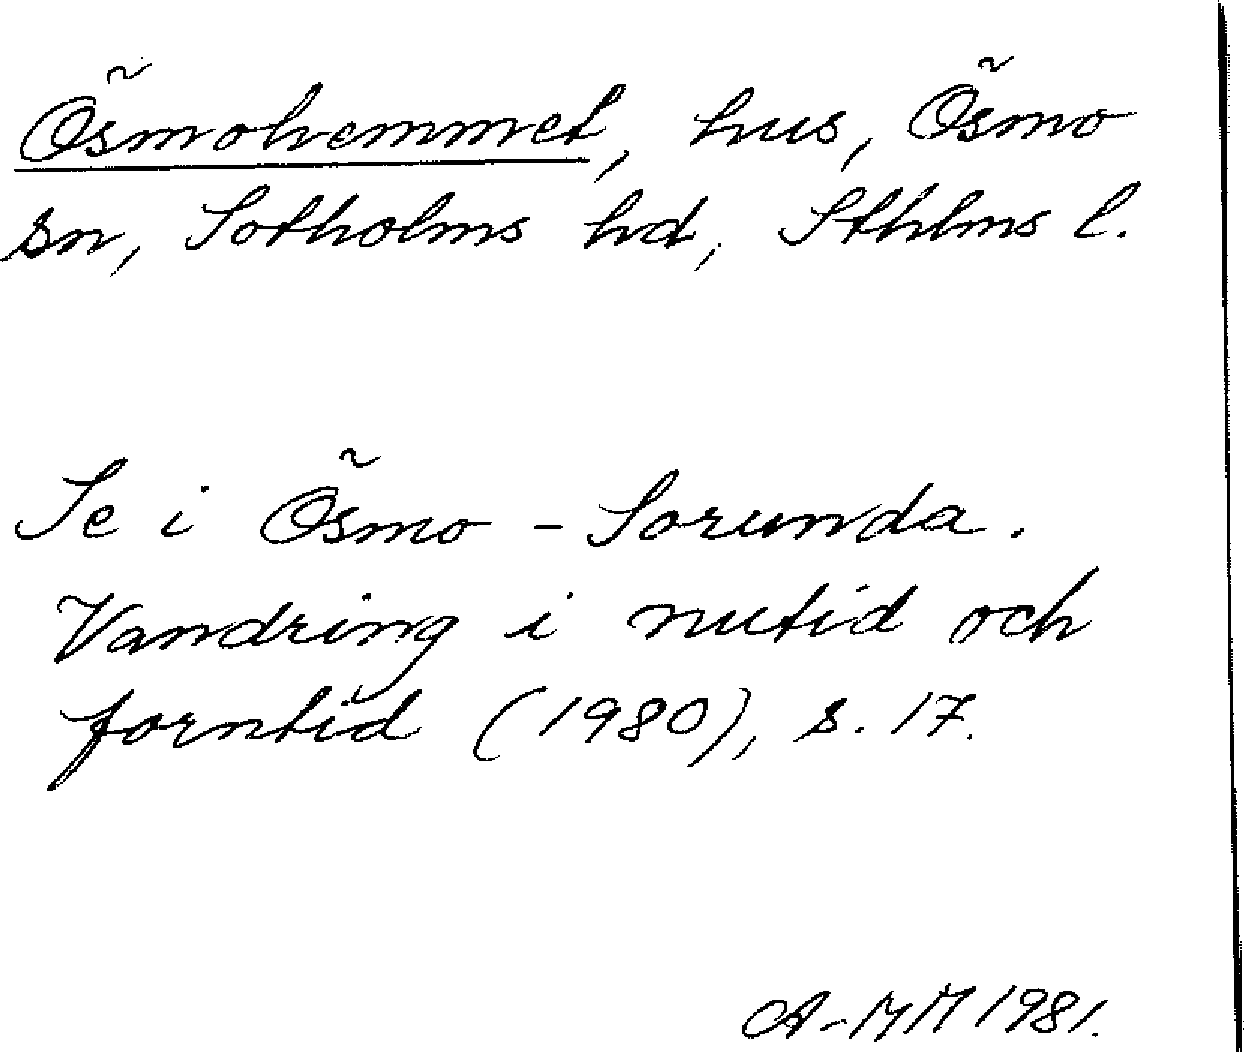 Ösmohemmet, hus, Ösmo
sn, Sotholms hd, Sthlms l.
Se i Ösmo - Sorunda.
Vandring i nutid och
forntid (1980), s. 17.
A-MM 1981.